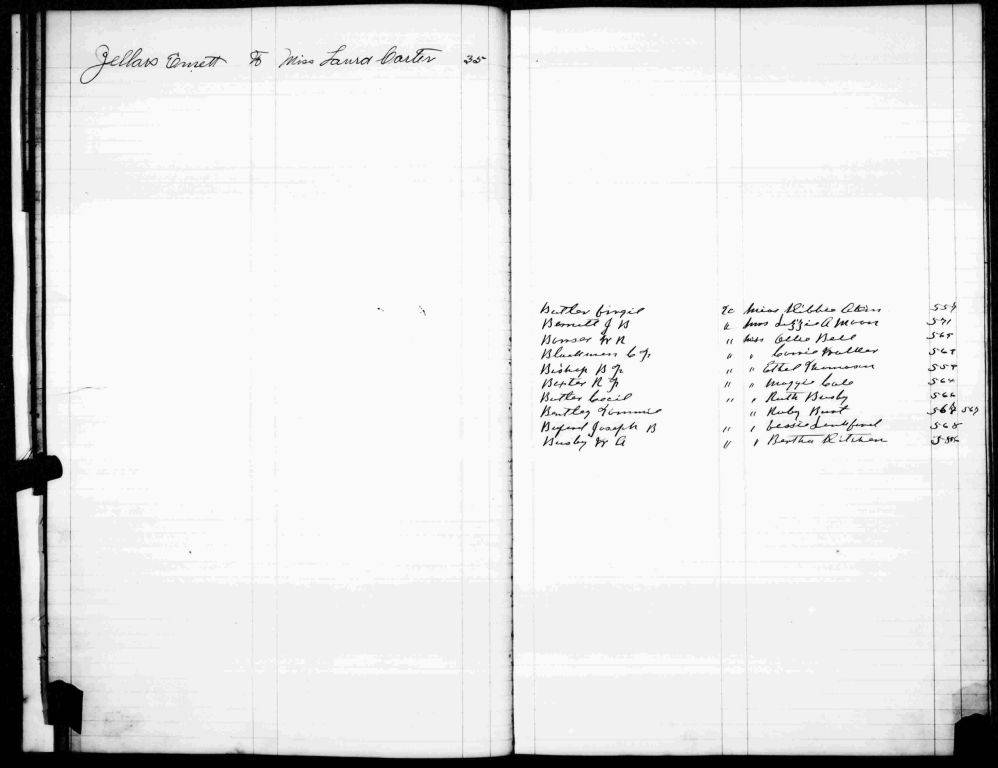 Zellars Emett To Miss Laura Carter 35
Butler Virgil To Miss Ribbie Akins 557
Bennett J B " Mrs Lizzie A Moon 571
Bonser W R " Miss Ollie Bell 565
Blackmon C J " " Carrie Walker 567
Bishop B J " " Ethel Thomason 557
Baxter R J " " Maggie Cale 564
Butler Cecil " " Ruth Busby 566
Bentley Tommie " Ruby Burt 567 567
Joseph B " " Lessie Lunsford 568
Busby W A " " Bertha Kitchen 586